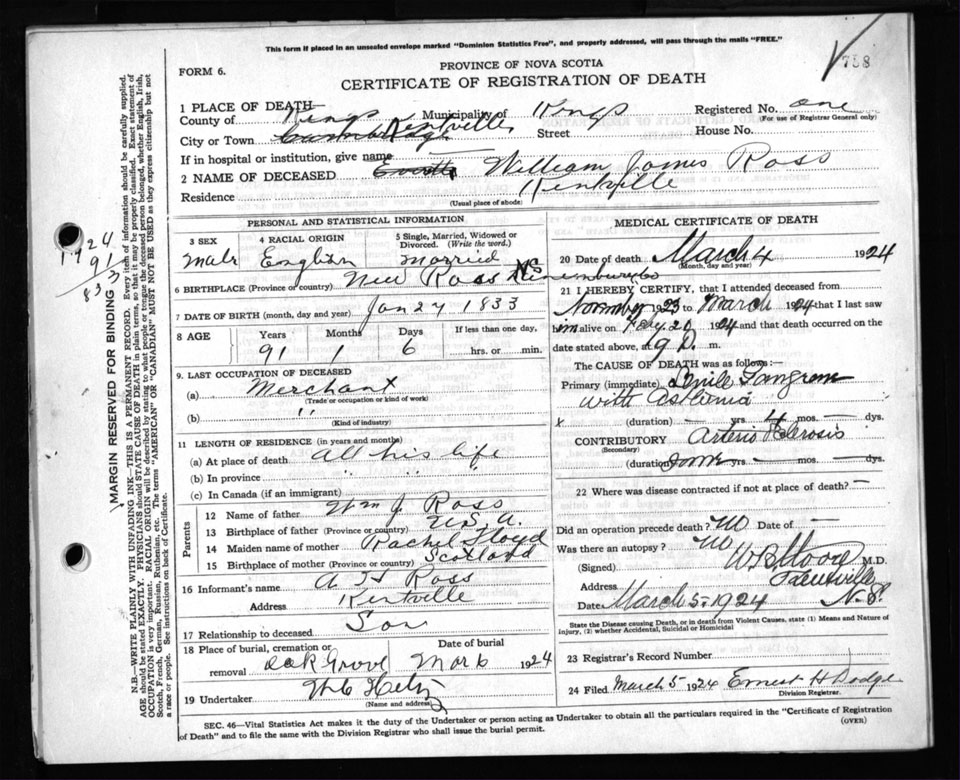 This form if placed in an unsealed envelope marked "Dominion Statistics Free", and properly addressed, will pass through the mails "FREE."
758
FORM 6.
PROVINCE OF NOVA SCOTIA
CERTIFICATE OF REGISTRATION OF DEATH
1 PLACE OF DEATH—
County of Kings Municipality of Kings Registered No. one
(For use of Registrar General only)
City or Town Kentville Street House No.
If in hospital or institution, give name
2 NAME OF DECEASED William James Ross
Residence Kentville
(Usual place of abode)
PERSONAL AND STATISTICAL INFORMATION
3 SEX 4 RACIAL ORIGIN 5 Single, Married, Widowed or Divorced. (Write the word.)
Male English Married
6 BIRTHPLACE (Province or country) New Ross Lunenburg Co NS
7 DATE OF BIRTH (month, day and year) Jan 27 1833
8 AGE Years Months Days If less than one day,
91 1 6 ......hrs. or ......min.
9. LAST OCCUPATION OF DECEASED
(a) Merchant
(Trade or occupation or kind of work)
(b) "
(Kind of industry)
11 LENGTH OF RESIDENCE (in years and months)
(a) At place of death all his life
(b) In province " " "
(c) In Canada (if an immigrant)
Parents
12 Name of father Wm J. Ross
13 Birthplace of father (Province or country) U.S.A.
14 Maiden name of mother Rachel Floyd
15 Birthplace of mother (Province or country) Scotland
16 Informant's name A H Ross
Address Kentville
17 Relationship to deceased Son
18 Place of burial, cremation or removal Date of burial
Oak Grove Mar 6 1924
19 Undertaker
(Name and address)
MEDICAL CERTIFICATE OF DEATH
20 Date of death March 4 1924
(Month, day and year)
21 I HEREBY CERTIFY, that I attended deceased from
November 1923 to March 1924 that I last saw
him alive on Feby 20 1924 and that death occurred on the
date stated above, at 9 P. m.
The CAUSE OF DEATH was as follows:—
Primary (immediate) Senile Gangrene
with Asthenia
x (duration) — yrs 4 mos. — dys.
CONTRIBUTORY Arterio Sclerosis
(Secondary)
(duration) some yrs — mos. — dys.
22 Where was disease contracted if not at place of death? —
Did an operation precede death? No Date of —
Was there an autopsy? No
(Signed) W B Moore M.D.
Address Kentville
Date March 5. 1924 N.S.
State the Disease causing Death, or in death from Violent Causes, state (1) Means and Nature of injury, (2) whether Accidental, Suicidal or Homicidal
23 Registrar's Record Number
24 Filed March 5 1924 Ernest H Dodge
Division Registrar.
SEC. 46—Vital Statistics Act makes it the duty of the Undertaker or person acting as Undertaker to obtain all the particulars required in the "Certificate of Registration
of Death" and to file the same with the Division Registrar who shall issue the burial permit.
(OVER)
MARGIN RESERVED FOR BINDING
N.B.—WRITE PLAINLY WITH UNFADING INK—THIS IS A PERMANENT RECORD. Every item of information should be carefully supplied.
AGE should be stated EXACTLY. PHYSICIANS should STATE CAUSE OF DEATH in plain terms, so that it may be properly classified. Exact statement of
OCCUPATION is very important. RACIAL ORIGIN will be described by stating to what people, or tongue the deceased person belonged, whether English, Irish,
Scotch, French, German, Russian, Ruthenian, etc. The terms "AMERICAN" or "CANADIAN" MUST NOT BE USED as they express citizenship but not
a race or people. See instructions on back of Certificate.
1924
91
833